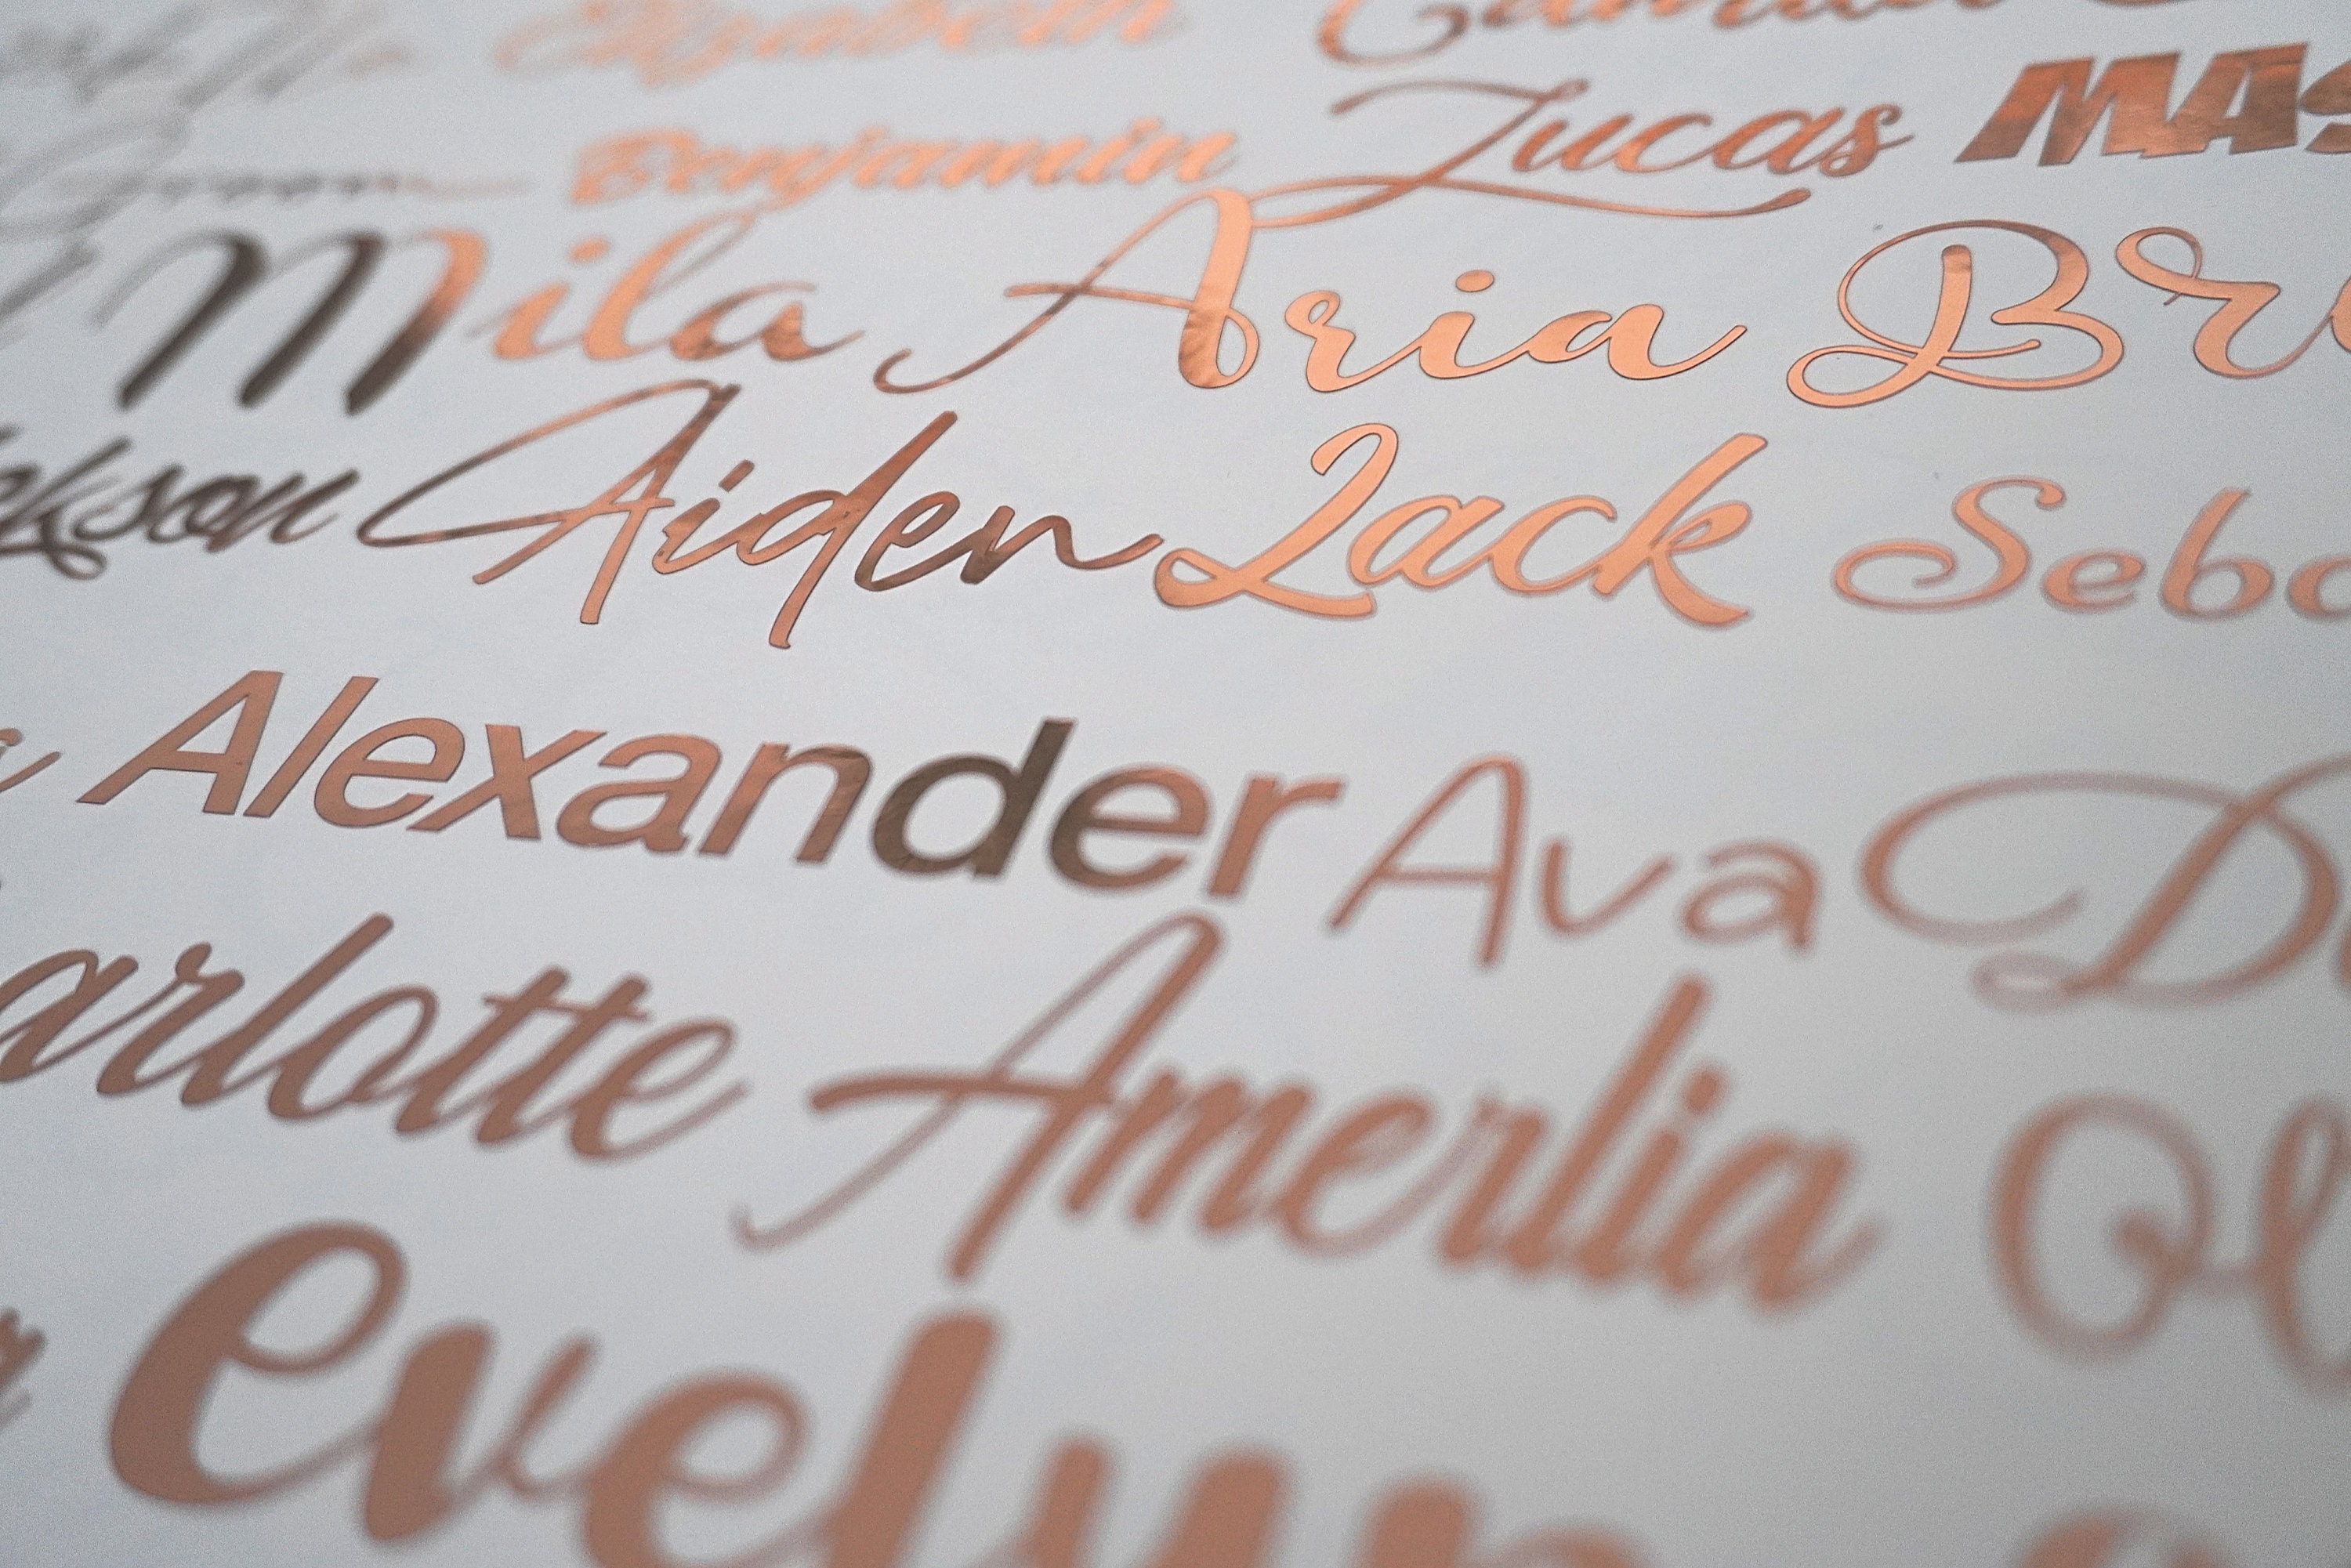 Elisabeth
Benjamin Lucas MAS
Mila Aria Br
ckson Aiden Jack Seba
Alexander Ava D
arlotte Amerlia Ol
evelyn